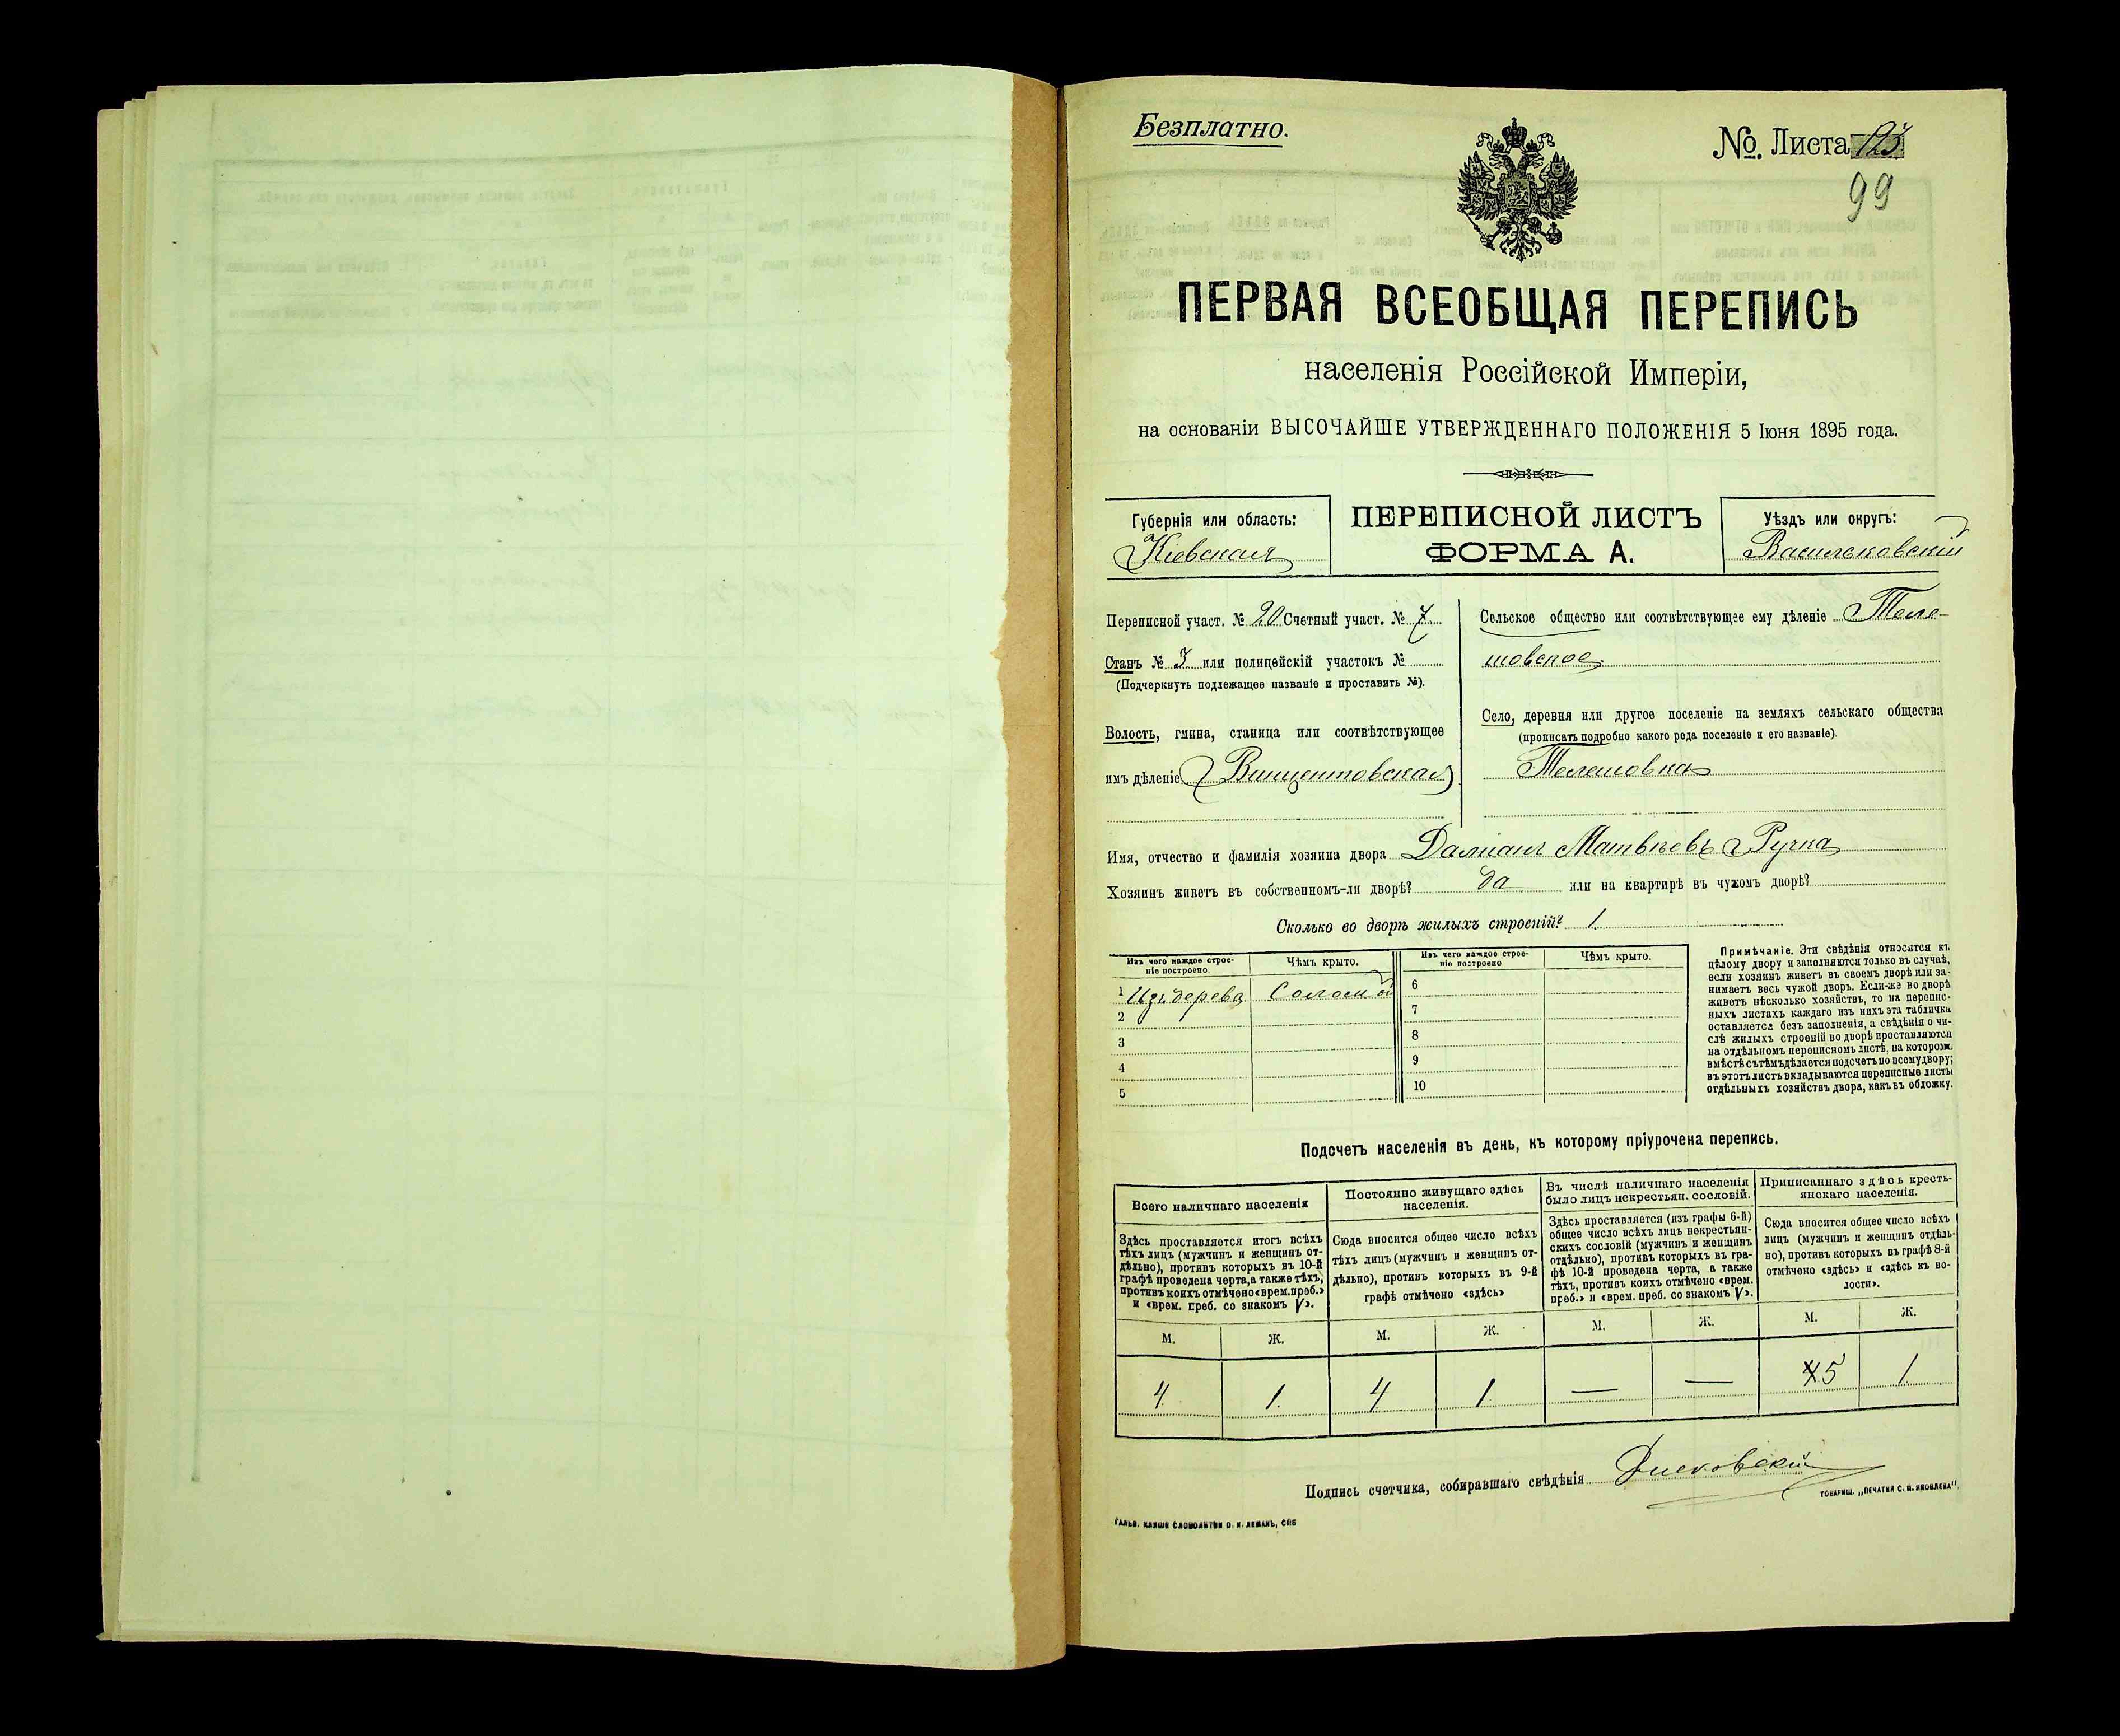 Безплатно.
№. Листа 123
99
ПЕРВАЯ ВСЕОБЩАЯ ПЕРЕПИСЬ
населенія Россійской Имперіи,
на основаніи ВЫСОЧАЙШЕ УТВЕРЖДЕННАГО ПОЛОЖЕНІЯ 5 Іюня 1895 года.
Губернія или область:
Кіевская
ПЕРЕПИСНОЙ ЛИСТЪ
ФОРМА А.
Уѣздъ или округъ:
Васильковскій
Переписной участ. № 20 Счетный участ. № 7
Станъ № 3 или полицейскій участокъ №
(Подчеркнуть подлежащее названіе и проставить №).
Волость, гмина, станица или соотвѣтствующее
имъ дѣленіе Винцентовская
Сельское общество или соотвѣтствующее ему дѣленіе Теле-
шовское
Село, деревня или другое поселеніе на земляхъ сельскаго общества
(прописать подробно какого рода поселеніе и его названіе).
Телешовка
Имя, отчество и фамилія хозяина двора Даміанъ Матвѣевъ Ручка
Хозяинъ живетъ въ собственномъ-ли дворѣ? да или на квартирѣ въ чужомъ дворѣ?
Сколько во дворѣ жилыхъ строеній? 1
Изъ чего каждое строе-
ніе построено.
Чѣмъ крыто.
Изъ чего каждое строе-
ніе построено
Чѣмъ крыто.
1 Изъ дерева Соломой
2
3
4
5
6
7
8
9
10
Примѣчаніе. Эти свѣдѣнія относятся къ
цѣлому двору и заполняются только въ случаѣ,
если хозяинъ живетъ въ своемъ дворѣ или за-
нимаетъ весь чужой дворъ. Если-же во дворѣ
живетъ нѣсколько хозяйствъ, то на перепис-
ныхъ листахъ каждаго изъ нихъ эта табличка
оставляется безъ заполненія, а свѣдѣнія о чи-
слѣ жилыхъ строеній во дворѣ проставляются
на отдѣльномъ переписномъ листѣ, на котором.
вмѣстѣ съ тѣмъ дѣлается подсчетъ по всему двору;
въ этотъ листъ вкладываются переписные листы
отдѣльныхъ хозяйствъ двора, какъ въ обложку.
Подсчетъ населенія въ день, къ которому пріурочена перепись.
Всего наличнаго населенія
Здѣсь проставляется итогъ всѣхъ
тѣхъ лицъ (мужчинъ и женщинъ от-
дѣльно), противъ которыхъ въ 10-й
графѣ проведена черта, а также тѣхъ,
противъ коихъ отмѣчено «врем. преб.»
и «врем. преб. со знакомъ V».
Постоянно живущаго здѣсь
населенія.
Сюда вносится общее число всѣхъ
тѣхъ лицъ (мужчинъ и женщинъ от-
дѣльно), противъ которыхъ въ 9-й
графѣ отмѣчено «здѣсь»
Въ числѣ наличнаго населенія
было лицъ некрестьян. сословій.
Здѣсь проставляется (изъ графы 6-й)
общее число всѣхъ лицъ некрестьян-
скихъ сословій (мужчинъ и женщинъ
отдѣльно), противъ которыхъ въ гра-
фѣ 10-й проведена черта, а также
тѣхъ, противъ коихъ отмѣчено «врем.
преб.» и «врем. преб. со знакомъ V».
Приписаннаго здѣсь кресть-
янскаго населенія.
Сюда вносится общее число всѣхъ
лицъ (мужчинъ и женщинъ отдѣль-
но), противъ которыхъ въ графѣ 8-й
отмѣчено «здѣсь» и «здѣсь къ во-
лости».
М. Ж. М. Ж. М. Ж. М. Ж.
4 1 4 1 — — 45 1
Подпись счетчика, собиравшаго свѣдѣнія
ТОВАРИЩ. „ПЕЧАТНЯ С. П. ЯКОВЛЕВА".
ГАЛЬВ. КЛИШЕ СЛОВОЛИТНИ О. И. ЛЕМАНЪ, СПБ